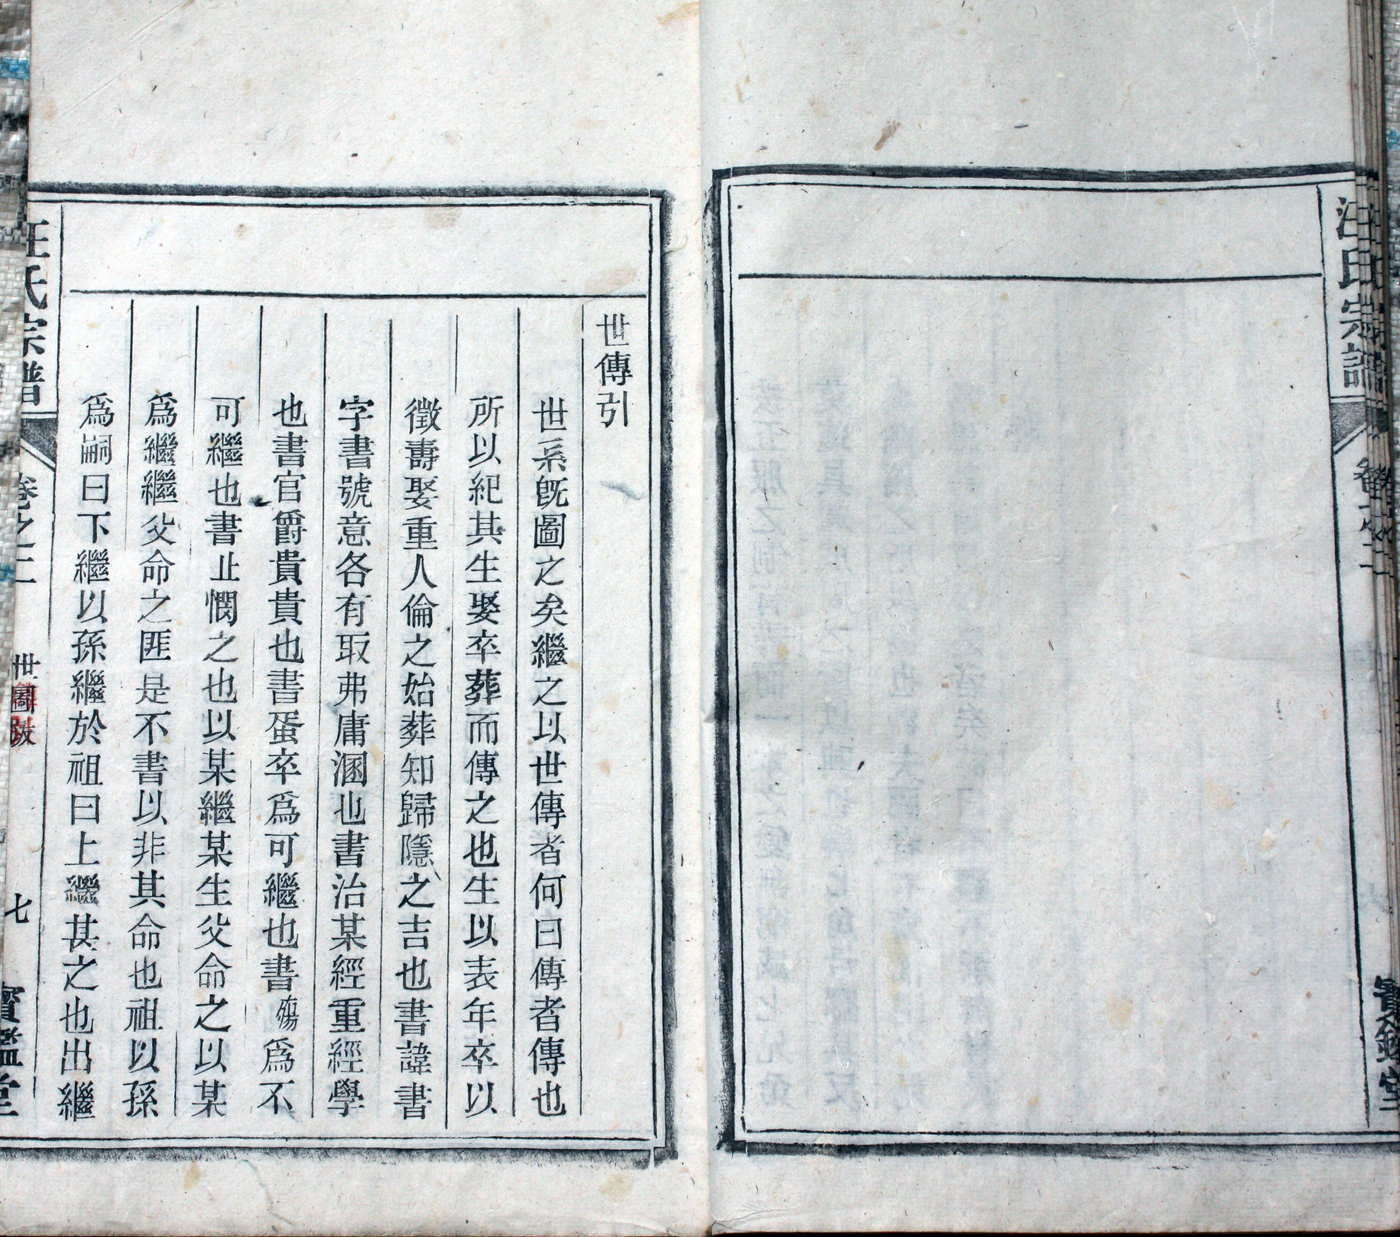 汪氏宗譜
卷之二
寶鑑堂
世傳引
世系旣圖之矣繼之以世傳者何曰傳者傳也
所以紀其生娶卒葬而傳之也生以表年卒以
徵壽娶重人倫之始葬知歸隱之吉也書諱書
字書號意各有取弗庸溷也書治某經重經學
也書官爵貴貴也書蚤卒爲可繼也書殤爲不
可繼也書止憫之也以某繼某生父命之以某
爲繼繼父命之匪是不書以非其命也祖以孫
爲嗣曰下繼以孫繼於祖曰上繼甚之也出繼
汪氏宗譜
卷之二
七
寶鑑堂